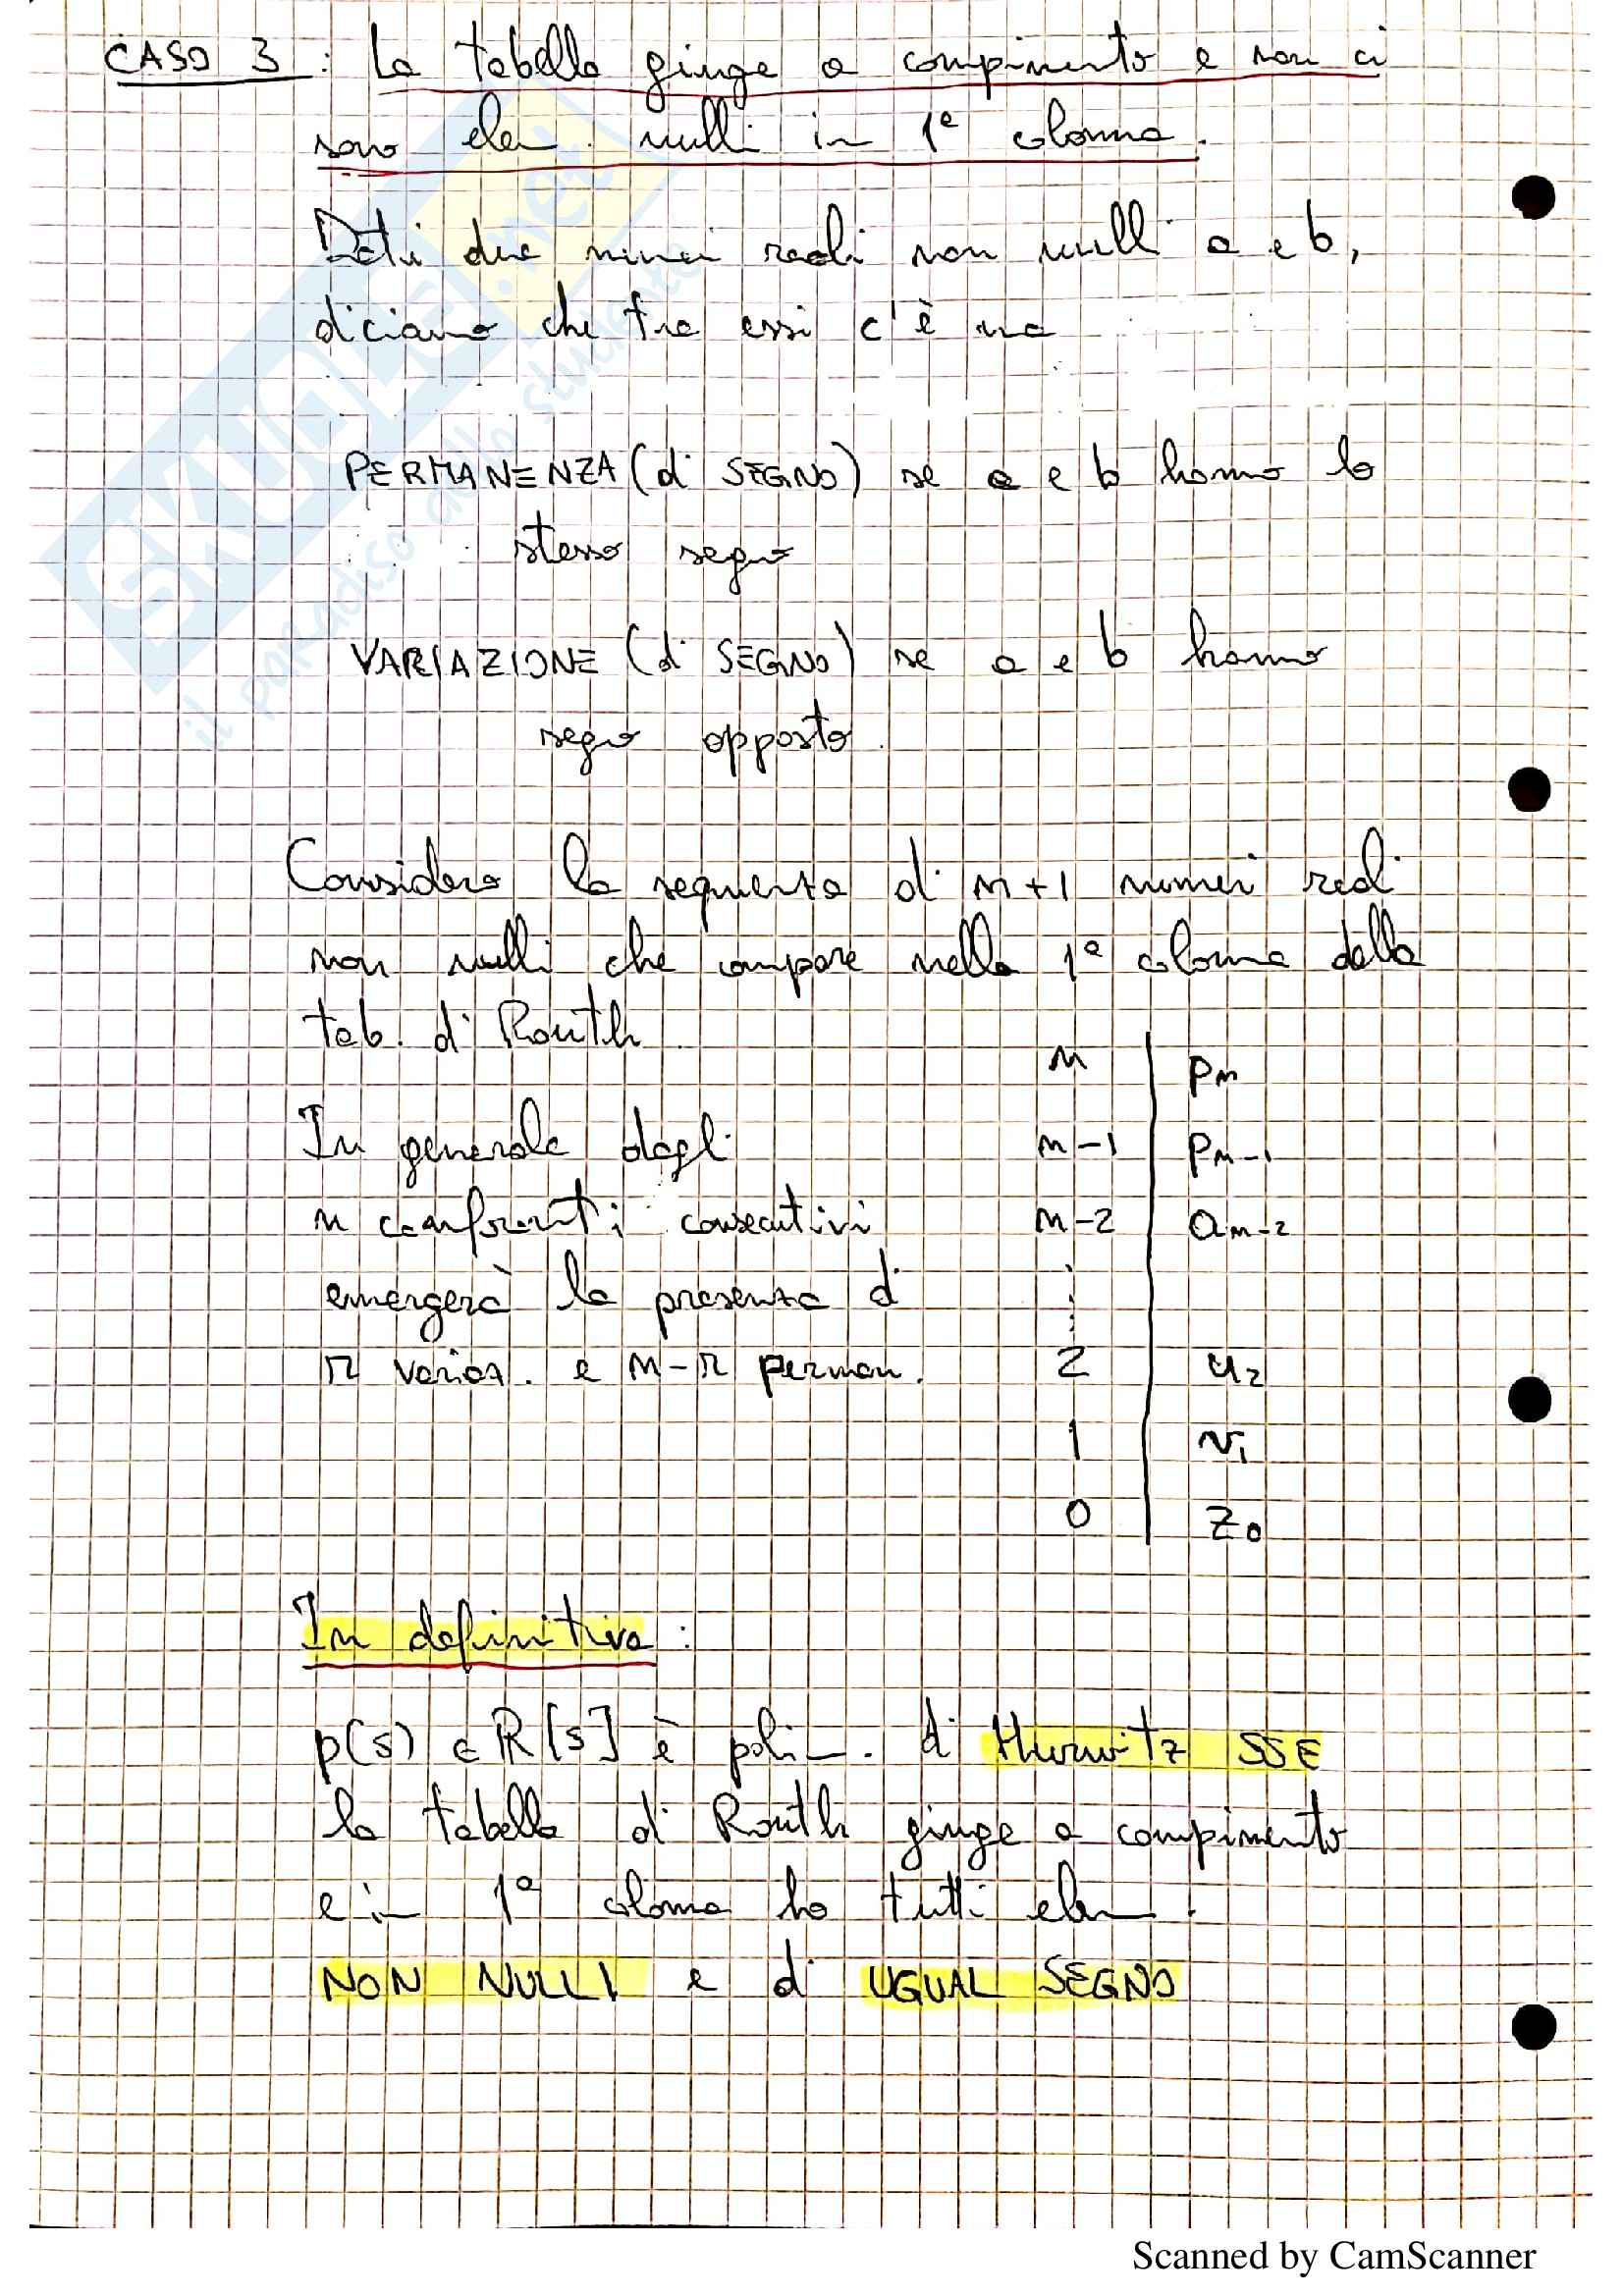 CASO 3 : La tabella giunge a compimento e non ci
sono elem. nulli in 1ª colonna.
Dati due numeri reali non nulli a e b,
diciamo che tra essi c'è una
PERMANENZA (di SEGNO) se a e b hanno lo
stesso segno
VARIAZIONE (di SEGNO) se a e b hanno
segno opposto.
Considero la sequenza di n+1 numeri reali
non nulli che compare nella 1ª colonna della
tab. di Routh.
n | pn
In generale dagli
n-1 | pn-1
n confronti consecutivi
n-2 | an-2
emergerà la presenza di
⋮
r variaz. e n-r perman.
2 | u2
1 | v1
0 | z0
In definitiva :
p(s) ∈ R[s] è polin. di Hurwitz SSE
la tabella di Routh giunge a compimento
e in 1ª colonna ho tutti elem.
NON NULLI e di UGUAL SEGNO
SKUOLA.net
il paradiso dello studente
Scanned by CamScanner